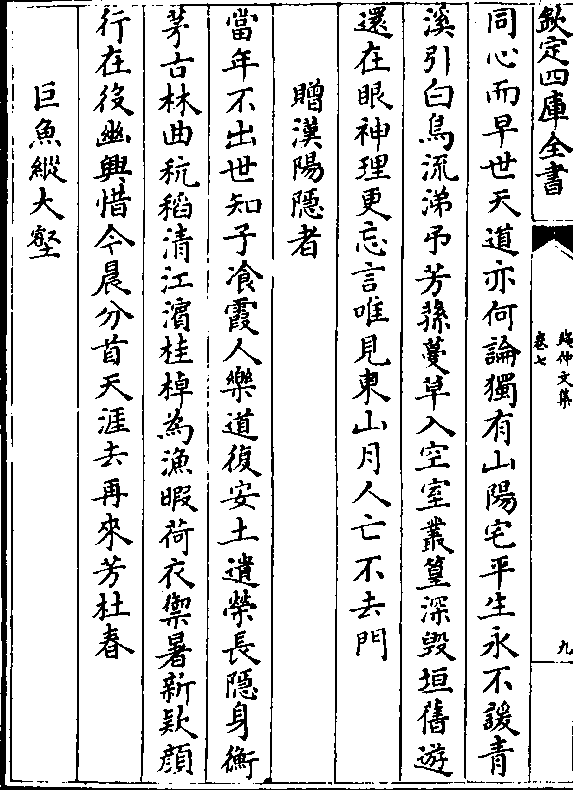 欽定四庫全書
臨仲文集
卷七
九
同心而早世天道亦何論獨有山陽宅平生永不諼青
溪引白鳥流涕弔芳蓀蔓草入空室叢篁深毀垣舊遊
還在眼神理更忘言唯見東山月人亡不去門
贈漢陽隱者
當年不出世知子飡霞人樂道復安土遺榮長隱身衡
茅古林曲秔稻清江濱桂棹為漁暇荷衣禦暑新欵顔
行在役幽興惜今晨分首天涯去再來芳杜春
巨魚縱大壑